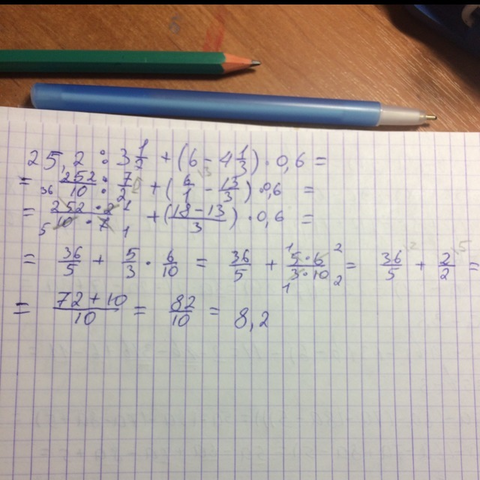 25,2 : 3 1/2 + (6 - 4 1/3) · 0,6 =
= 252/10 : 7/2 + (6/1 - 13/3) · 0,6 =
= 252 · 2/10 · 7 + (18 - 13/3) · 0,6 =
= 36/5 + 5/3 · 6/10 = 36/5 + 5 · 6/3 · 10 = 36/5 + 2/2 =
= 72 + 10/10 = 82/10 = 8,2